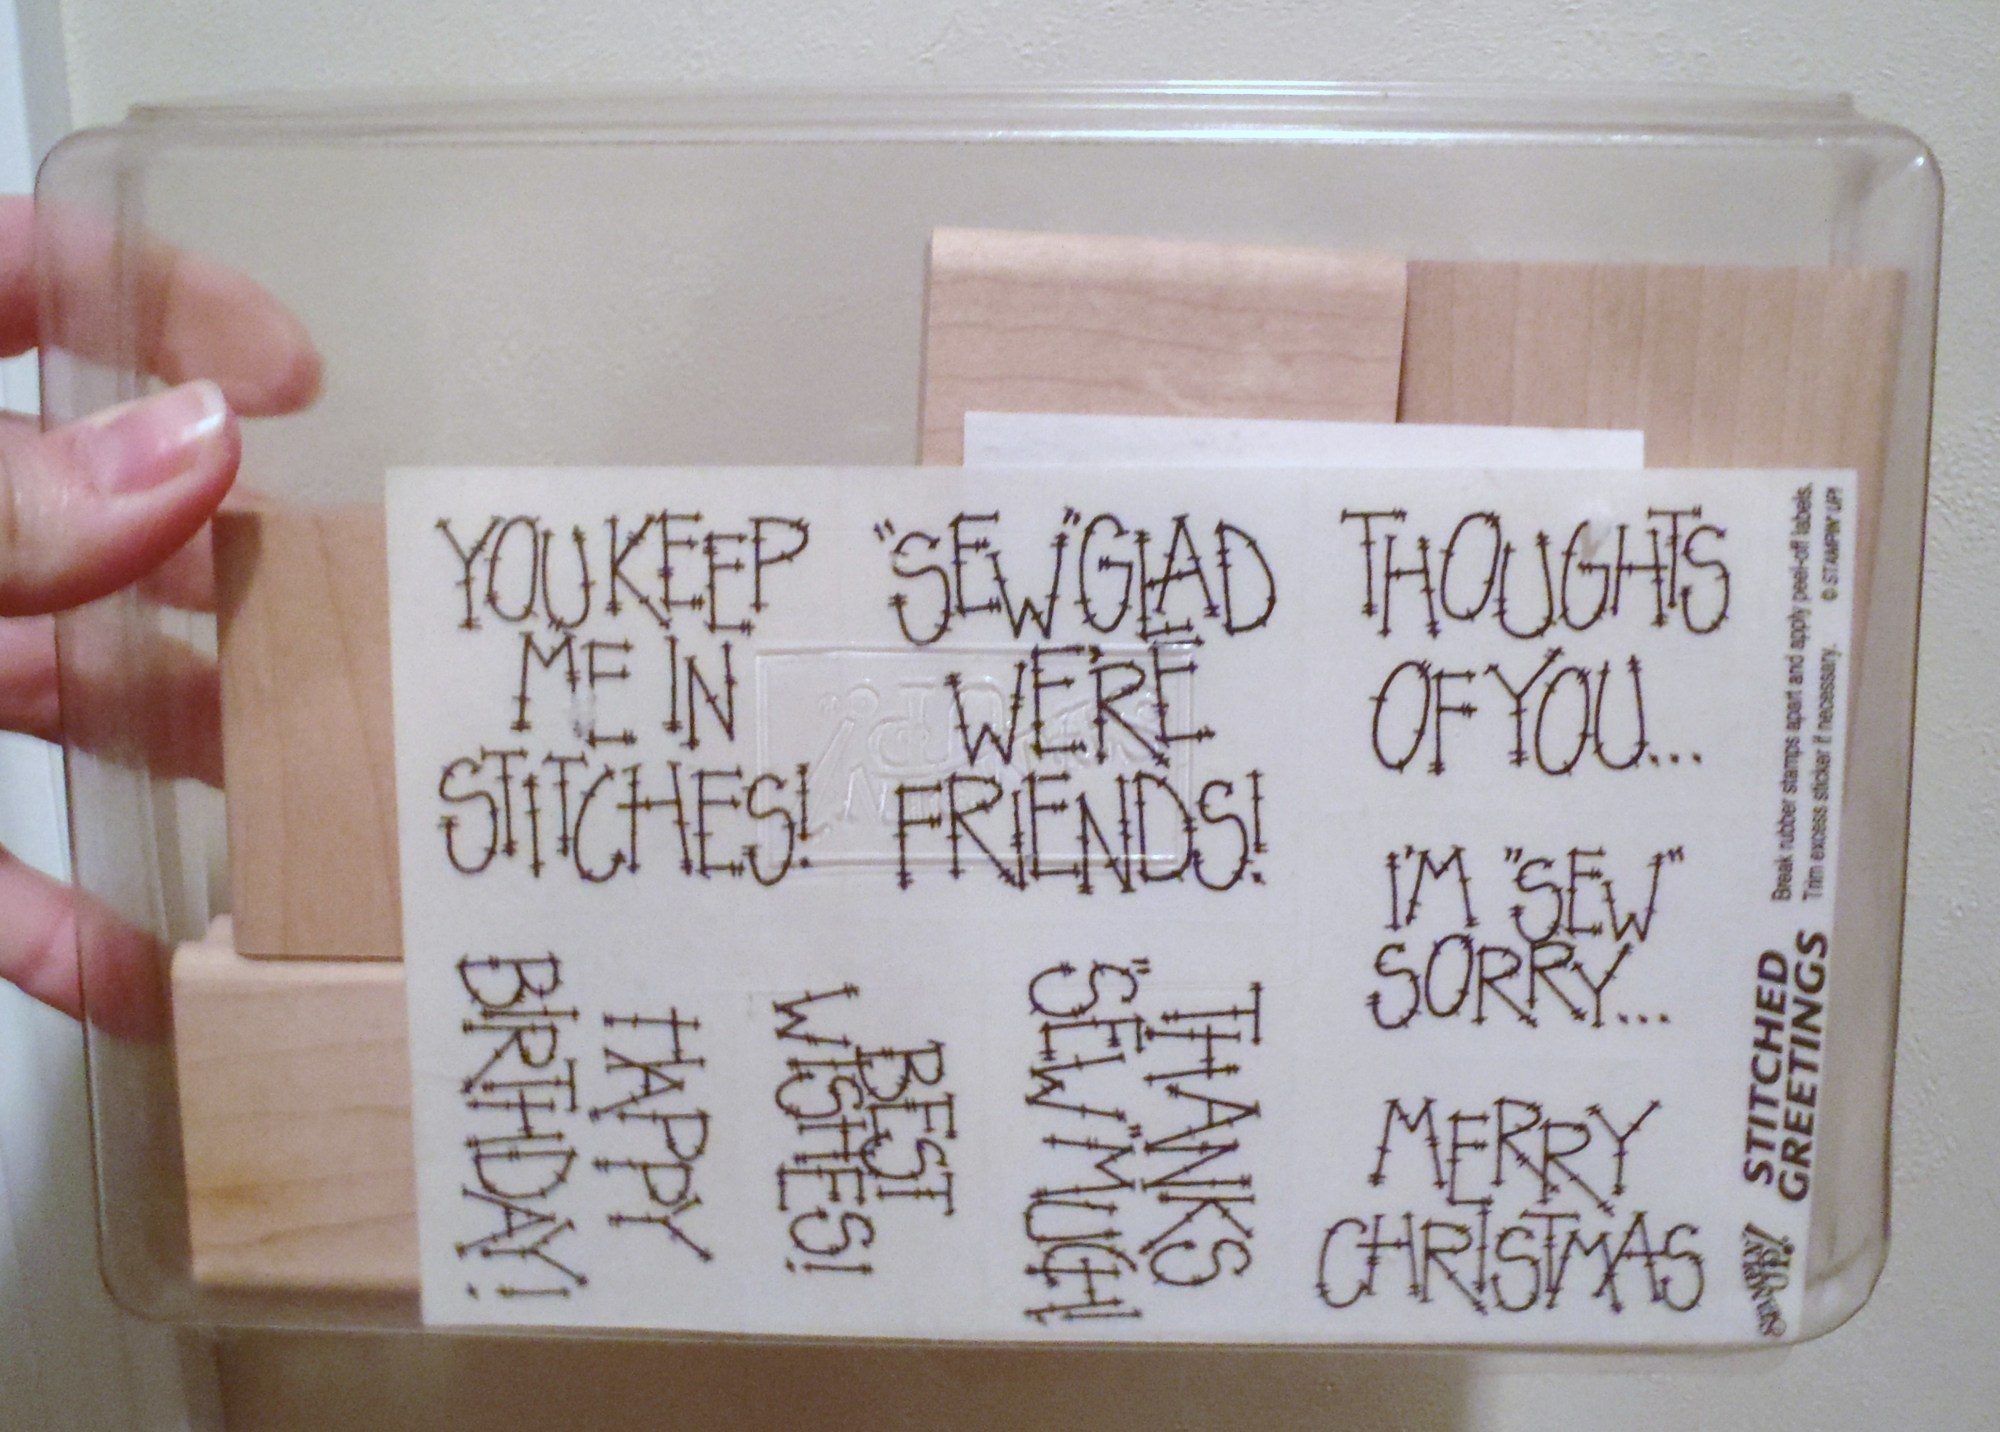 YOU KEEP
ME IN
STITCHES!
"SEW" GLAD
WE'RE
FRIENDS!
THOUGHTS
OF YOU...
I'M "SEW"
SORRY...
MERRY
CHRISTMAS
HAPPY
BIRTHDAY!
BEST
WISHES!
THANKS
"SEW" MUCH!
STAMPIN' UP!
STITCHED
GREETINGS
Break rubber stamps apart and apply peel-off labels.
Trim excess sticker if necessary. © STAMPIN' UP!